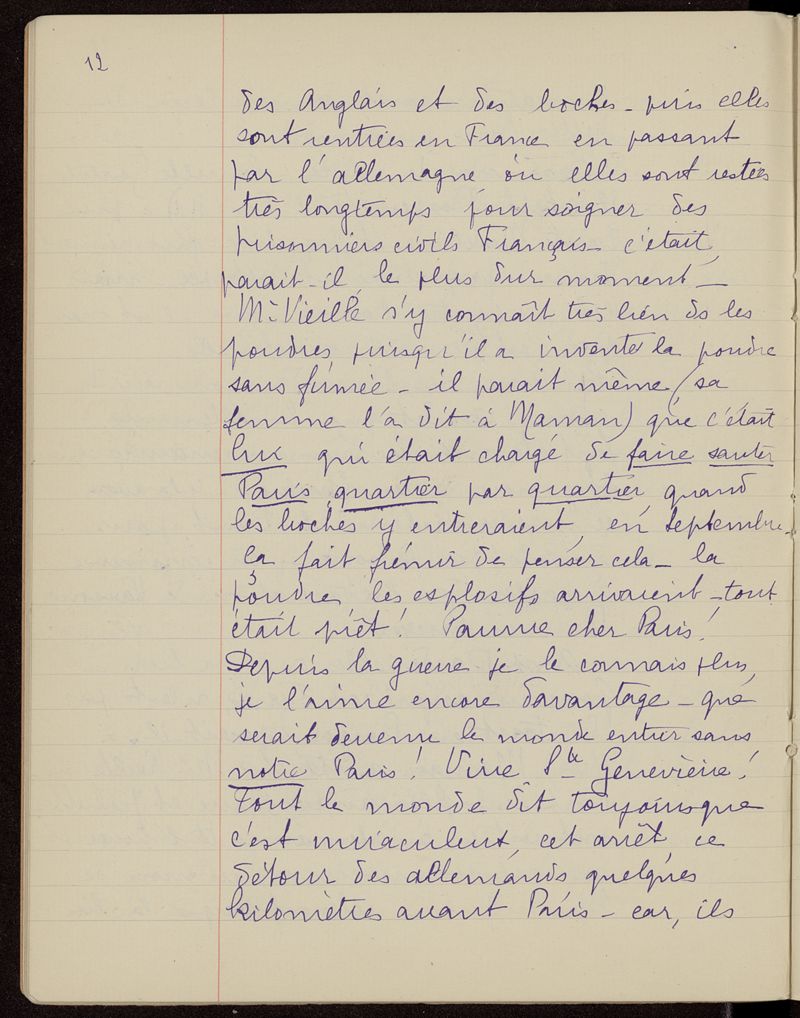 12
des Anglais et des boches - puis elles
sont rentrées en France en passant
par l'Allemagne où elles sont restées
très longtemps pour soigner des
prisonniers civils Français - c'était,
parait-il, le plus dur moment -
Mr Vieille s'y connaît très bien ds les
poudres, puisqu'il a inventé la poudre
sans fumée - il parait même (sa
femme l'a dit à Maman) que c'était
lui qui était chargé de faire sauter
Paris quartier par quartier, quand
les boches y entreraient, en septembre -
ça fait frémir de penser cela - la
poudre, les esplosifs arrivaient - tout
était prêt ! Pauvre cher Paris !
Depuis la guerre je le connais plus,
je l'aime encore davantage - que
serait devenu le monde entier sans
notre Paris ! Vive Ste Geneviève !
Tout le monde dit toujours que
c'est miraculeux, cet arrêt, ce
détour des allemands quelques
kilomètres avant Paris - car, ils